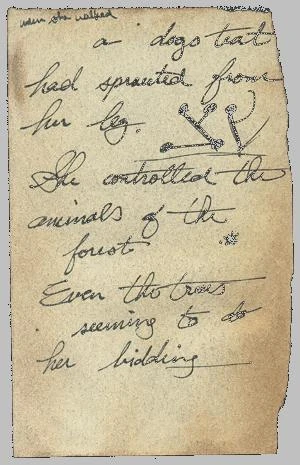 when she walked
a dogo that
had sprouted from
her leg.
She controlled the
animals of the
forest
Even the trees
seeming to do
her bidding